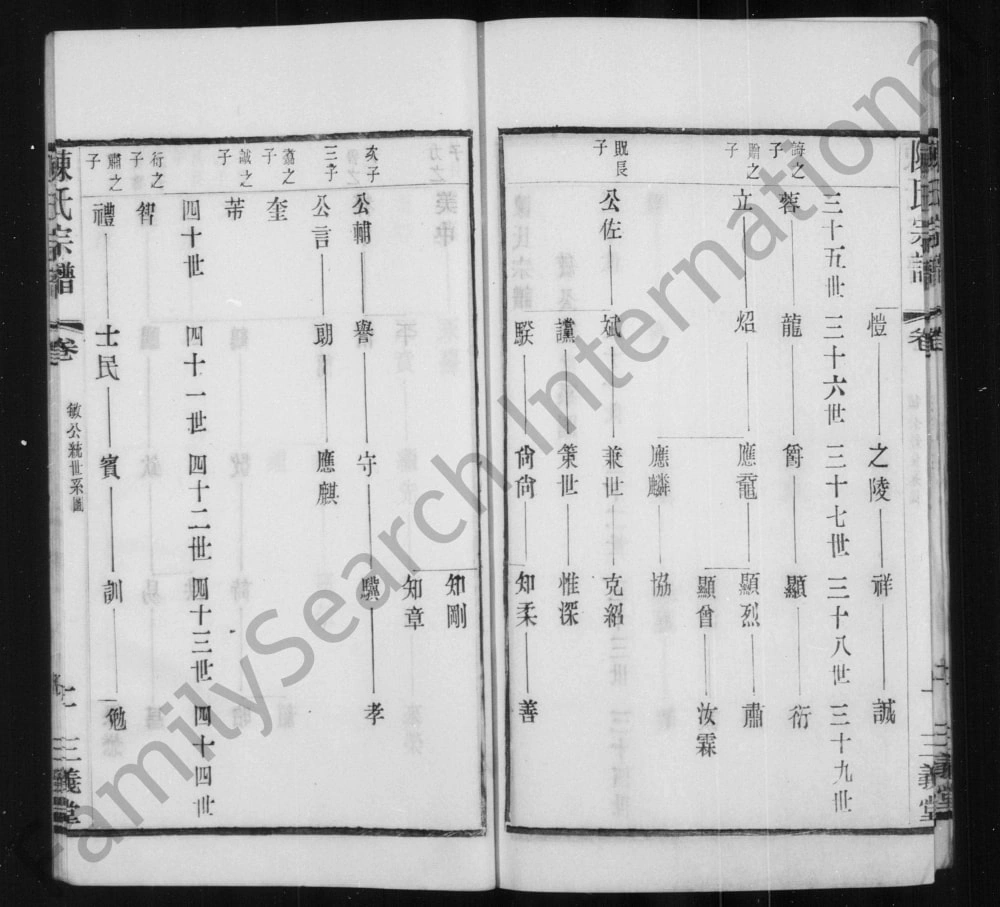 陳氏宗譜
卷
三義堂
愷 之陵 祥 誠
三十五世 三十六世 三十七世 三十八世 三十九世
之子 蓉 龍 爵 顯 衍
之子 立 炤 應龍 顯烈 肅
顯曾 汝霖
應麟 協
長子 公佐 斌 兼世 克紹
讜 策世 惟深
騤 尙尙 知柔 善
知剛
知章
亥子 公輔 譽 守 驥 孝
三子 公言 勗 應麒
之子 奎
誠之子 芾
四十世 四十一世 四十二世 四十三世 四十四世
衍之子 智
肅之子 禮 士民 賓 訓 勉
敏公統世系圖
陳氏宗譜
卷
三義堂
FamilySearch International